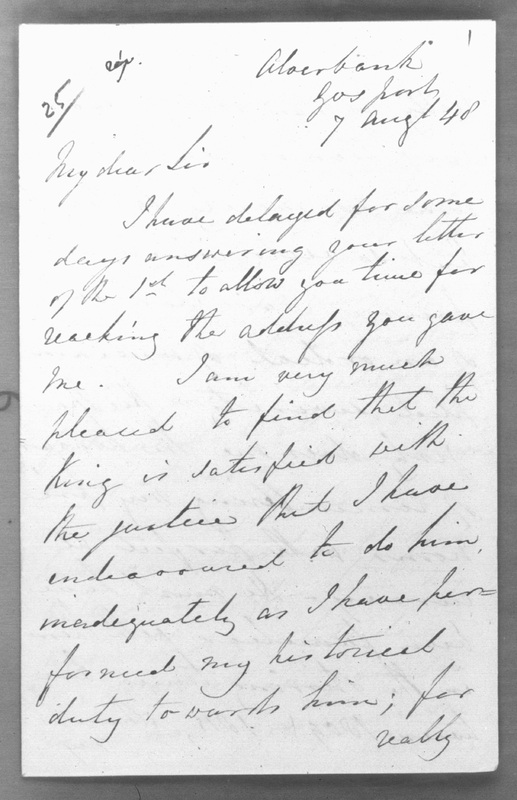 1
rép.
25/
Alverbank
Gosport
7 Augt 48
My dear Sir
I have delayed for some
days answering your letter
of the 1st to allow you time for
reaching the address you gave
me. I am very much
pleased to find that the
King is satisfied with
the justice that I have
endeavoured to do him,
inadequately as I have per=
formed my historical
duty towards him; for
really